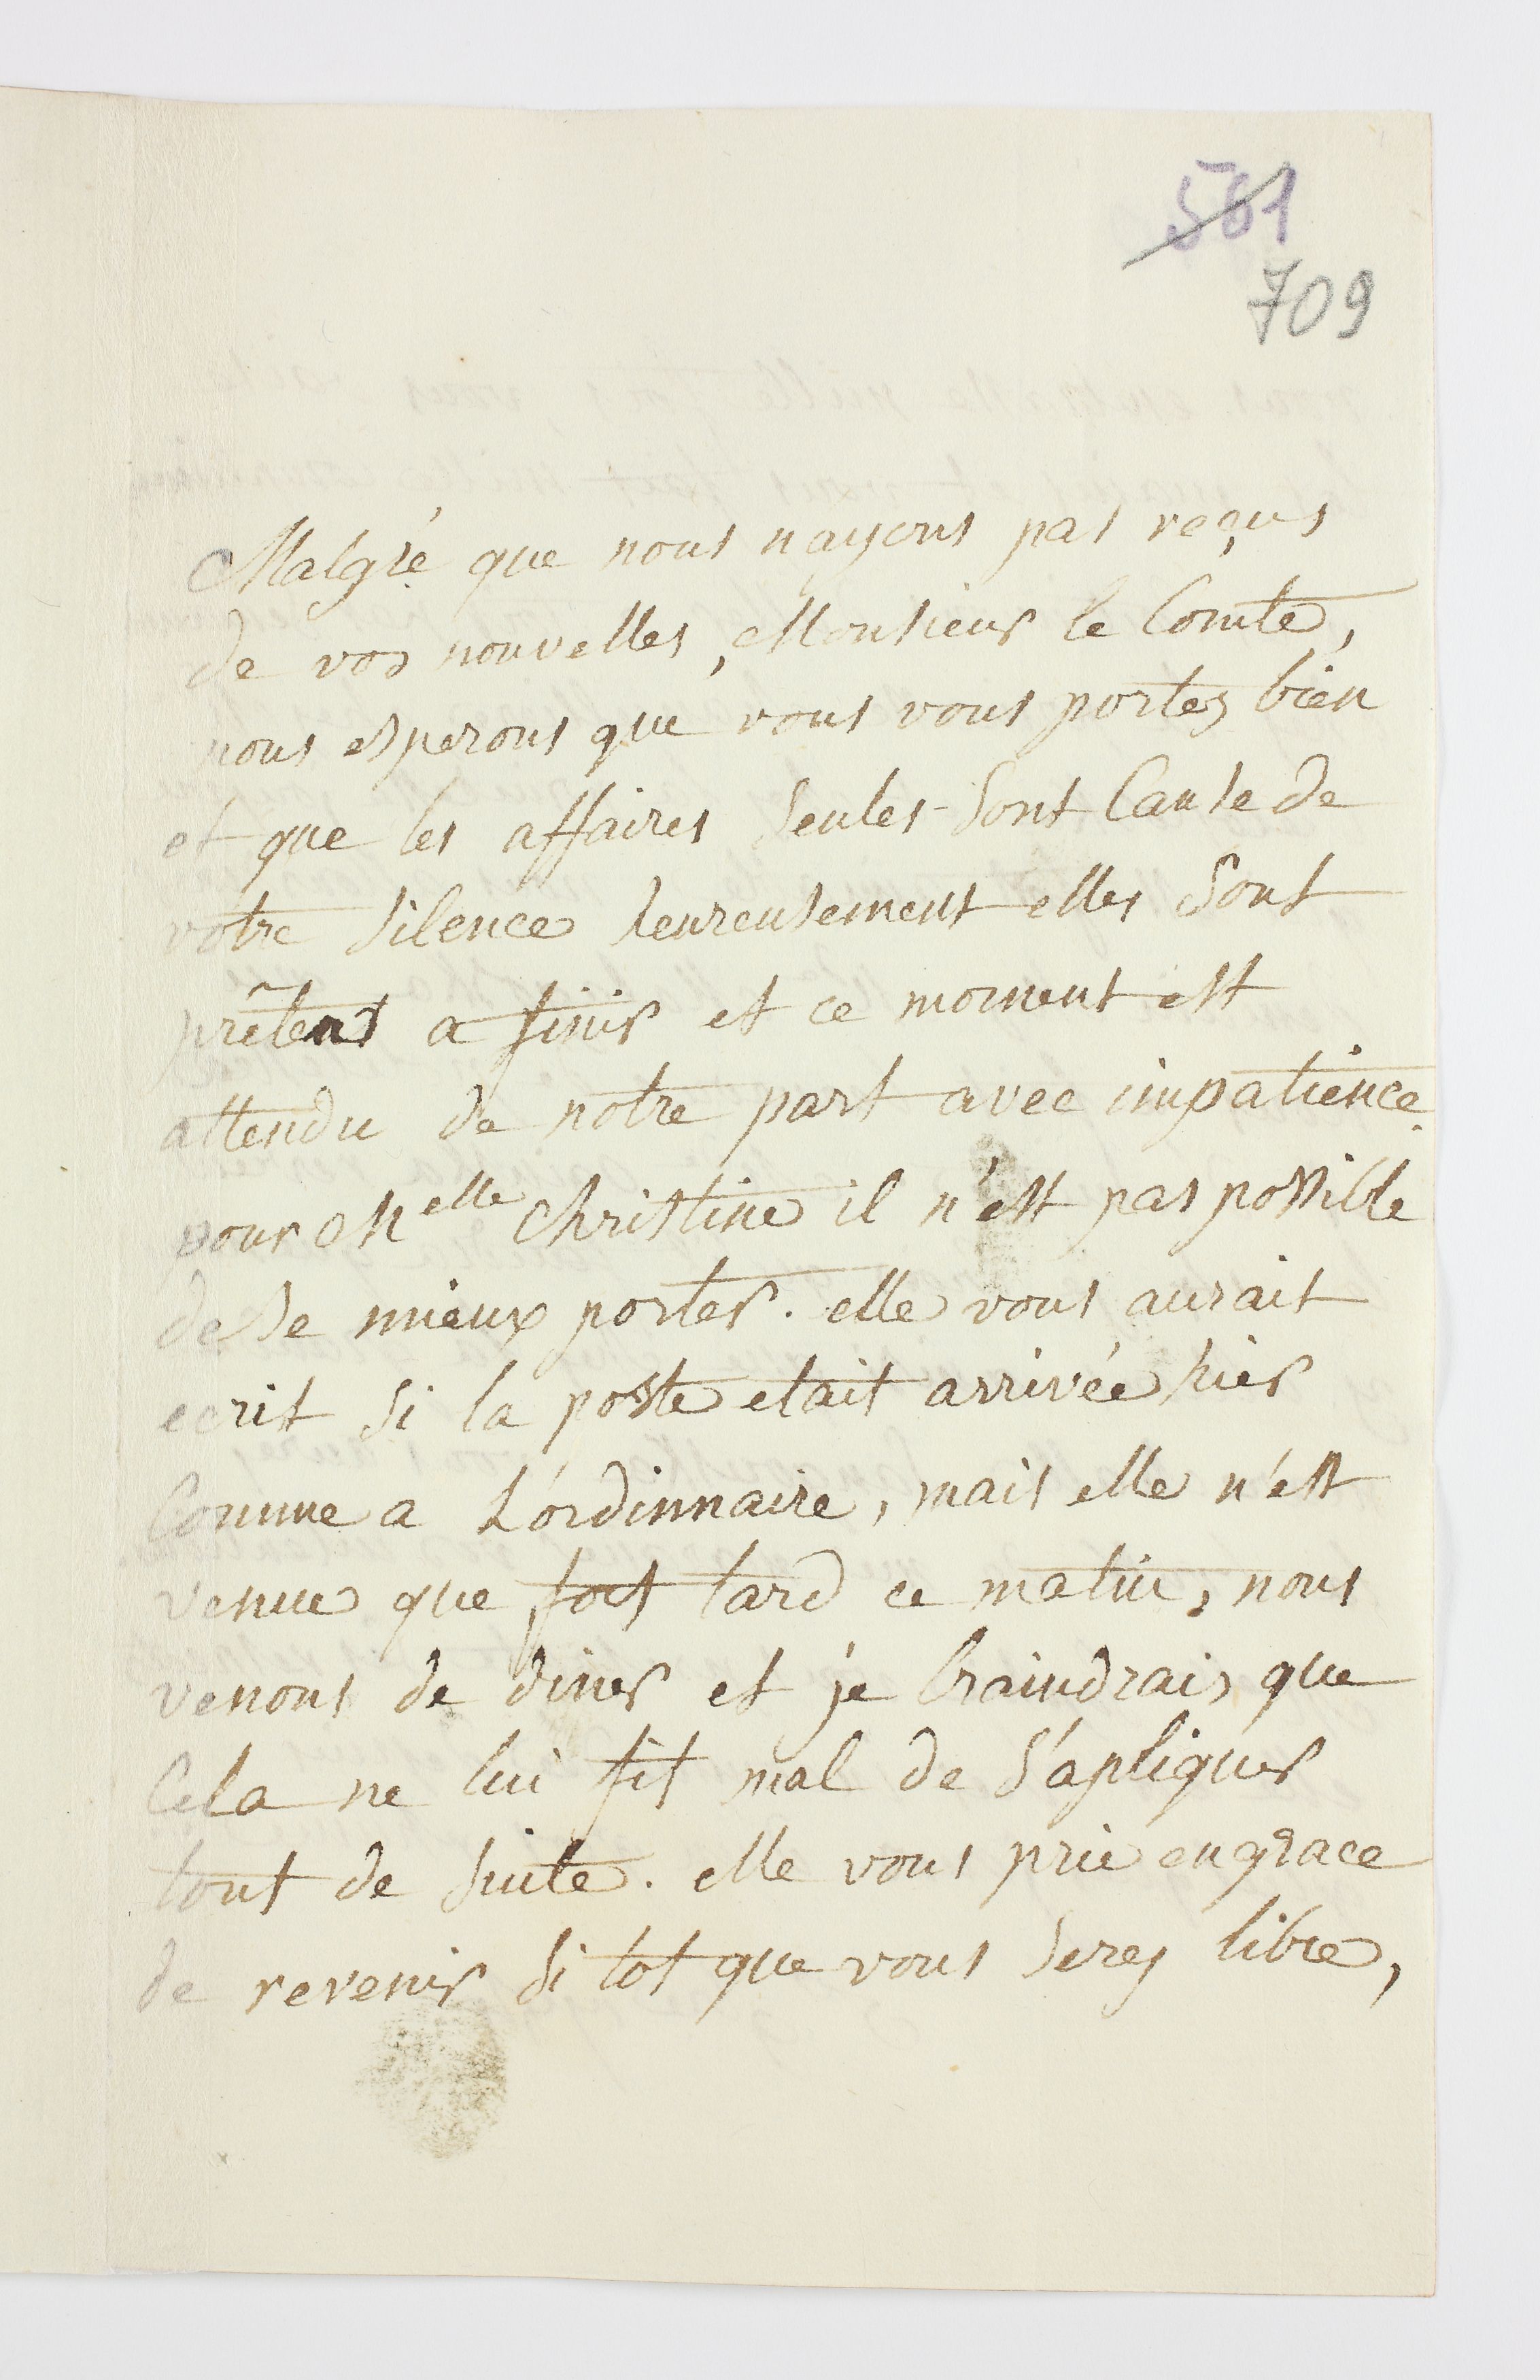 561
709
Malgré que nous nayons pas reçus
de vos nouvelles, Monsieur le Comte,
nous esperons que vous vous portez bien
et que les affaires seules sont Cause de
votre silence heureusement elles sont
prêtes a finir et ce moment est
attendu de notre part avec impatience.
pour Melle Christine il n'est pas possible
de se mieux porter. elle vous aurait
ecrit si la poste etait arrivée hier
Comme a L'ordinnaire, mais elle n'est
venue que fort tard ce matin, nous
venons de diner et je Craindrais que
Cela ne lui fit mal de s'apliquer
tout de suite. elle vous prie en grace
de revenir si tot que vous serez libre,